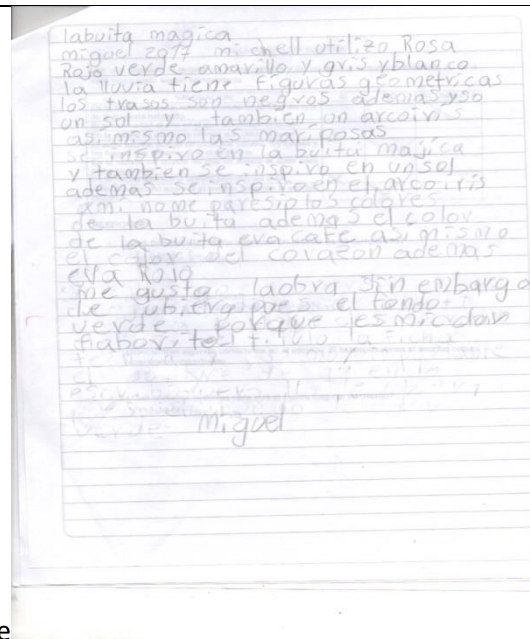 labuita magica
miguel 2017 michell utilizo Rosa
Rojo verde amarillo y gris yblanco
la lluvia tiene figuras geometricas
los trasos son negros ademas yso
un sol y tambien un arcoiris
asi mismo las mariposas
se inspiro en la buitu majica
y tambien se inspiro en unsol
ademas se inspiro en el arcoiris
ami nome paresio los colores
de la buita ademas el color
de la buita era cafe asi mismo
el color del corazon ademas
era Rojo
me gusta laobra sin embargo
le ubiera poes el fondo
verde porque es micolor
fabor, te
Miguel
e